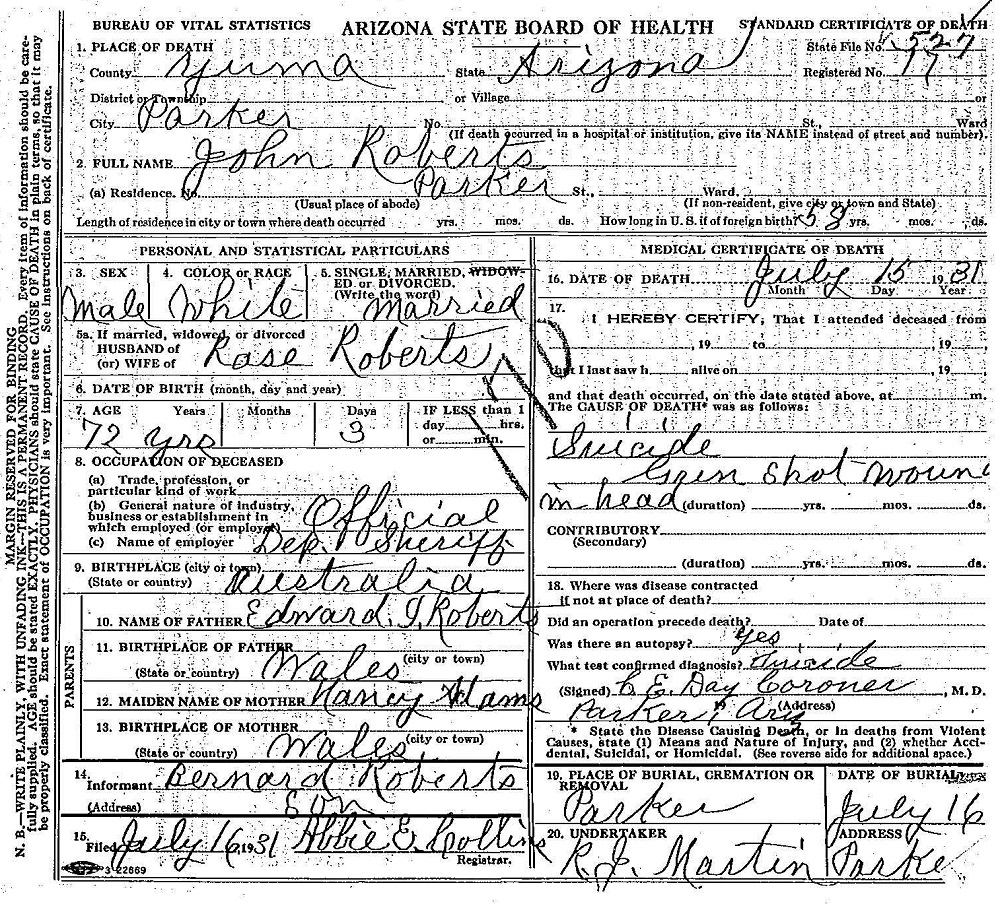 BUREAU OF VITAL STATISTICS ARIZONA STATE BOARD OF HEALTH STANDARD CERTIFICATE OF DEATH
1. PLACE OF DEATH State File No. 527
County Yuma State Arizona Registered No. 17
District or Township or Village or
City Parker No. St., Ward
(If death occurred in a hospital or institution, give its NAME instead of street and number).
2. FULL NAME John Roberts
(a) Residence. No. Parker St., Ward.
(Usual place of abode) (If non-resident, give city or town and State)
Length of residence in city or town where death occurred yrs. mos. ds. How long in U. S. if of foreign birth? 58 yrs. mos. ds.
PERSONAL AND STATISTICAL PARTICULARS
3. SEX 4. COLOR or RACE 5. SINGLE, MARRIED, WIDOW-
ED. or DIVORCED.
(Write the word)
Male White Married
5a. If married, widowed, or divorced
HUSBAND of
(or) WIFE of Rose Roberts
6. DATE OF BIRTH (month, day and year)
7. AGE Years Months Days IF LESS than 1
day hrs.
or min.
72 yrs 3
8. OCCUPATION OF DECEASED
(a) Trade, profession, or
particular kind of work
(b) General nature of industry,
business or establishment in
which employed (or employer) Official
(c) Name of employer Dep. Sheriff
9. BIRTHPLACE (city or town)
(State or country) Australia
PARENTS
10. NAME OF FATHER Edward J. Roberts
11. BIRTHPLACE OF FATHER
(State or country) Wales (city or town)
12. MAIDEN NAME OF MOTHER Nancy Adams
13. BIRTHPLACE OF MOTHER
(State or country) Wales (city or town)
14.
Informant Bernard Roberts
(Address) Son
15.
Filed July 16, 1931 Abbie E. Collins
Registrar.
3-22669
MEDICAL CERTIFICATE OF DEATH
16. DATE OF DEATH July 15 1931
Month Day Year
17.
I HEREBY CERTIFY, That I attended deceased from
, 19 to , 19
that I last saw h alive on , 19
and that death occurred, on the date stated above, at m.
The CAUSE OF DEATH* was as follows:
Suicide
Gun shot wound
in head (duration) yrs. mos. ds.
CONTRIBUTORY
(Secondary)
(duration) yrs. mos. ds.
18. Where was disease contracted
if not at place of death?
Did an operation precede death? Date of
Was there an autopsy? Yes
What test confirmed diagnosis? Suicide
(Signed) C. E. Day Coroner , M. D.
19 (Address)
Parker, Ariz
* State the Disease Causing Death, or in deaths from Violent
Causes, state (1) Means and Nature of Injury, and (2) whether Acci-
dental, Suicidal, or Homicidal. (See reverse side for additional space.)
19. PLACE OF BURIAL, CREMATION OR
REMOVAL DATE OF BURIAL
Parker July 16
20. UNDERTAKER ADDRESS
R. J. Martin Parke
MARGIN RESERVED FOR BINDING
N. B.—WRITE PLAINLY, WITH UNFADING INK—THIS IS A PERMANENT RECORD. Every item of information should be care-
fully supplied. AGE should be stated EXACTLY. PHYSICIANS should state CAUSE OF DEATH in plain terms, so that it may
be properly classified. Exact statement of OCCUPATION is very important. See instructions on back of certificate.